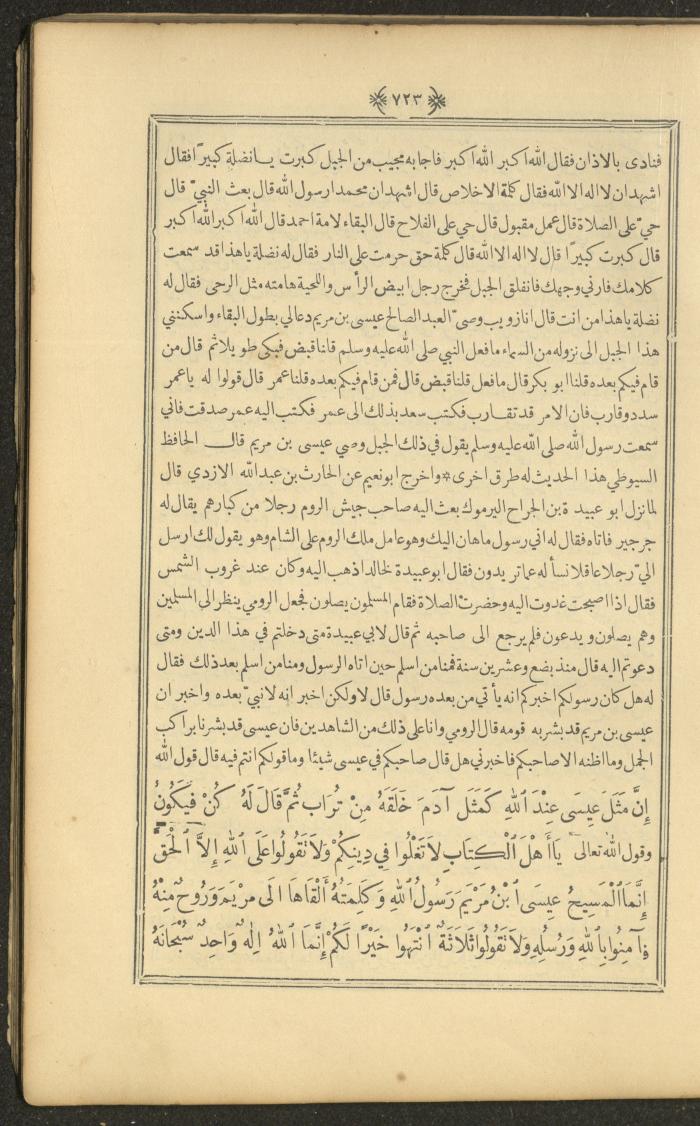 ٧٢٣
فنادى بالاذان فقال الله اكبر الله اكبر فاجابه مجيب من الجبل كبرت يـانضلة كبيرًا فقال
اشهد ان لا اله الا الله فقال كلمة الاخلاص قال اشهد ان محمدا رسول الله قال بعث النبيّ قال
حيّ على الصلاة قال عمل مقبول قال حي على الفلاح قال البقاء لامة احمد قال الله اكبر الله اكبر
قال كبرت كبيرًا قال لا اله الا الله قال كلمة حق حرمت على النار فقال له نضلة ياهذا قد سمعت
كلامك فارني وجهك فانفلق الجبل فخرج رجل ابيض الرأس واللحية هامته مثل الرحى فقال له
نضلة ياهذا من انت قال انا زويب وصيّ العبد الصالح عيسى بن مريم دعا لي بطول البقاء واسكنني
هذا الجبل الى نزوله من السماء ما فعل النبي صلى الله عليه وسلم قلنا قبض فبكى طويلا ثم قال من
قام فيكم بعده قلنا ابو بكر قال ما فعل قلنا قبض قال فمن قام فيكم بعده قلنا عمر قال قولوا له ياعمر
سدد وقارب فان الامر قد تقـارب فكتب سعد بذلك الى عمر فكتب اليه عمر صدقت فاني
سمعت رسول الله صلى الله عليه وسلم يقول في ذلك الجبل وصي عيسى بن مريم قال الحافظ
السيوطي هذا الحديث له طرق اخرى * واخرج ابو نعيم عن الحارث بن عبد الله الازدي قال
لما نزل ابو عبيدة بن الجراح اليرموك بعث اليه صاحب جيش الروم رجلا من كبارهم يقال له
جرجير فاتاه فقال له اني رسول ماهان اليك وهو عامل ملك الروم على الشام وهو يقول لك ارسل
اليّ رجلا عاقلا نسأله عما تريدون فقال ابو عبيدة خالد اذهب اليه وكان عند غروب الشمس
فقال اذا اصبحت غدوت اليه وحضرت الصلاة فقام المسلمون يصلون فجعل الرومي ينظر الى المسلمين
وهم يصلون ويدعون فلم يرجع الى صاحبه ثم قال لابي عبيدة متى دخلتم في هذا الدين ومتى
دعوتم اليه قال منذ بضع وعشرين سنة فمنا من اسلم حين اتاه الرسول ومنا من اسلم بعد ذلك فقال
له هل كان رسولكم اخبركم انه يأتي من بعده رسول قال لا ولكن اخبر انه لا نبيّ بعده واخبر ان
عيسى بن مريم قد بشر به قومه قال الرومي وانا على ذلك من الشاهدين فان عيسى قد بشرنا براكب
الجمل وما اظنه الا صاحبكم فاخبرني هل قال صاحبكم في عيسى شيئا وما قولكم انتم فيه قال قول الله
إِنَّ مَثَلَ عِيسَى عِنْدَ ٱللهِ كَمَثَلِ آدَمَ خَلَقَهُ مِنْ تُرَابٍ ثُمَّ قَالَ لَهُ كُنْ فَيَكُونُ
وقول الله تعالى يَا أَهْلَ ٱلْكِتَابِ لاَ تَغْلُوا فِي دِينِكُمْ وَلاَ تَقُولُوا عَلَى ٱللهِ إِلاَّ ٱلْحَقَّ
إِنَّمَا ٱلْمَسِيحُ عِيسَى ٱبْنُ مَرْيَمَ رَسُولُ ٱللهِ وَكَلِمَتُهُ أَلْقَاهَا الَى مَرْيَمَ وَرُوحٌ مِنْهُ
فَآمِنُوا بِاللهِ وَرُسُلِهِ وَلاَ تَقُولُوا ثَلاَثَةٌ ٱنْتَهُوا خَيْرًا لَكُمْ إِنَّمَا ٱللهُ إِلٰهٌ وَاحِدٌ سُبْحَانَهُ